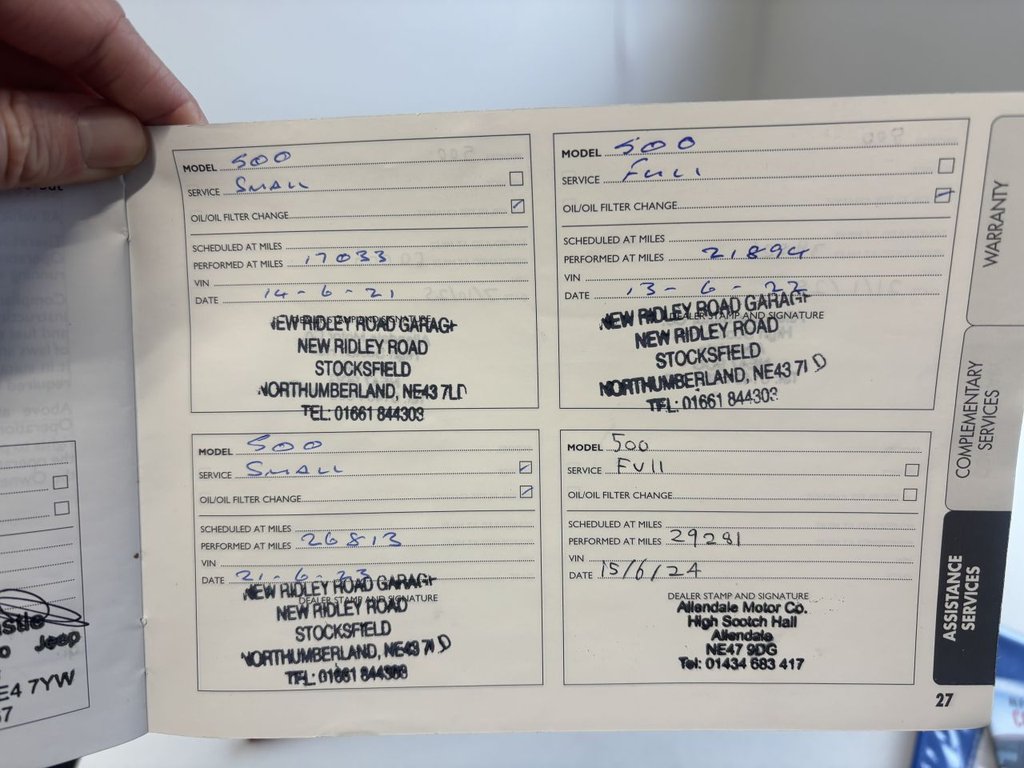 MODEL 500
SERVICE SMALL
OIL/OIL FILTER CHANGE
SCHEDULED AT MILES
PERFORMED AT MILES 17033
VIN
DATE 14-6-21
DEALER STAMP AND SIGNATURE
NEW RIDLEY ROAD GARAGE
NEW RIDLEY ROAD
STOCKSFIELD
NORTHUMBERLAND, NE43 7LD
TEL: 01661 844303
MODEL 500
SERVICE FULL
OIL/OIL FILTER CHANGE
SCHEDULED AT MILES
PERFORMED AT MILES 21894
VIN
DATE 13-6-22
DEALER STAMP AND SIGNATURE
NEW RIDLEY ROAD GARAGE
NEW RIDLEY ROAD
STOCKSFIELD
NORTHUMBERLAND, NE43 7LD
TEL: 01661 844303
MODEL 500
SERVICE SMALL
OIL/OIL FILTER CHANGE
SCHEDULED AT MILES
PERFORMED AT MILES 26813
VIN
DATE 21-6-23
DEALER STAMP AND SIGNATURE
NEW RIDLEY ROAD GARAGE
NEW RIDLEY ROAD
STOCKSFIELD
NORTHUMBERLAND, NE43 7LD
TEL: 01661 844303
MODEL 500
SERVICE FUll
OIL/OIL FILTER CHANGE
SCHEDULED AT MILES
PERFORMED AT MILES 29281
VIN
DATE 15/6/24
DEALER STAMP AND SIGNATURE
Allendale Motor Co.
High Scotch Hall
Allendale
NE47 9DG
Tel: 01434 683 417
WARRANTY
COMPLEMENTARY
SERVICES
ASSISTANCE
SERVICES
27
Jeep
E4 7YW